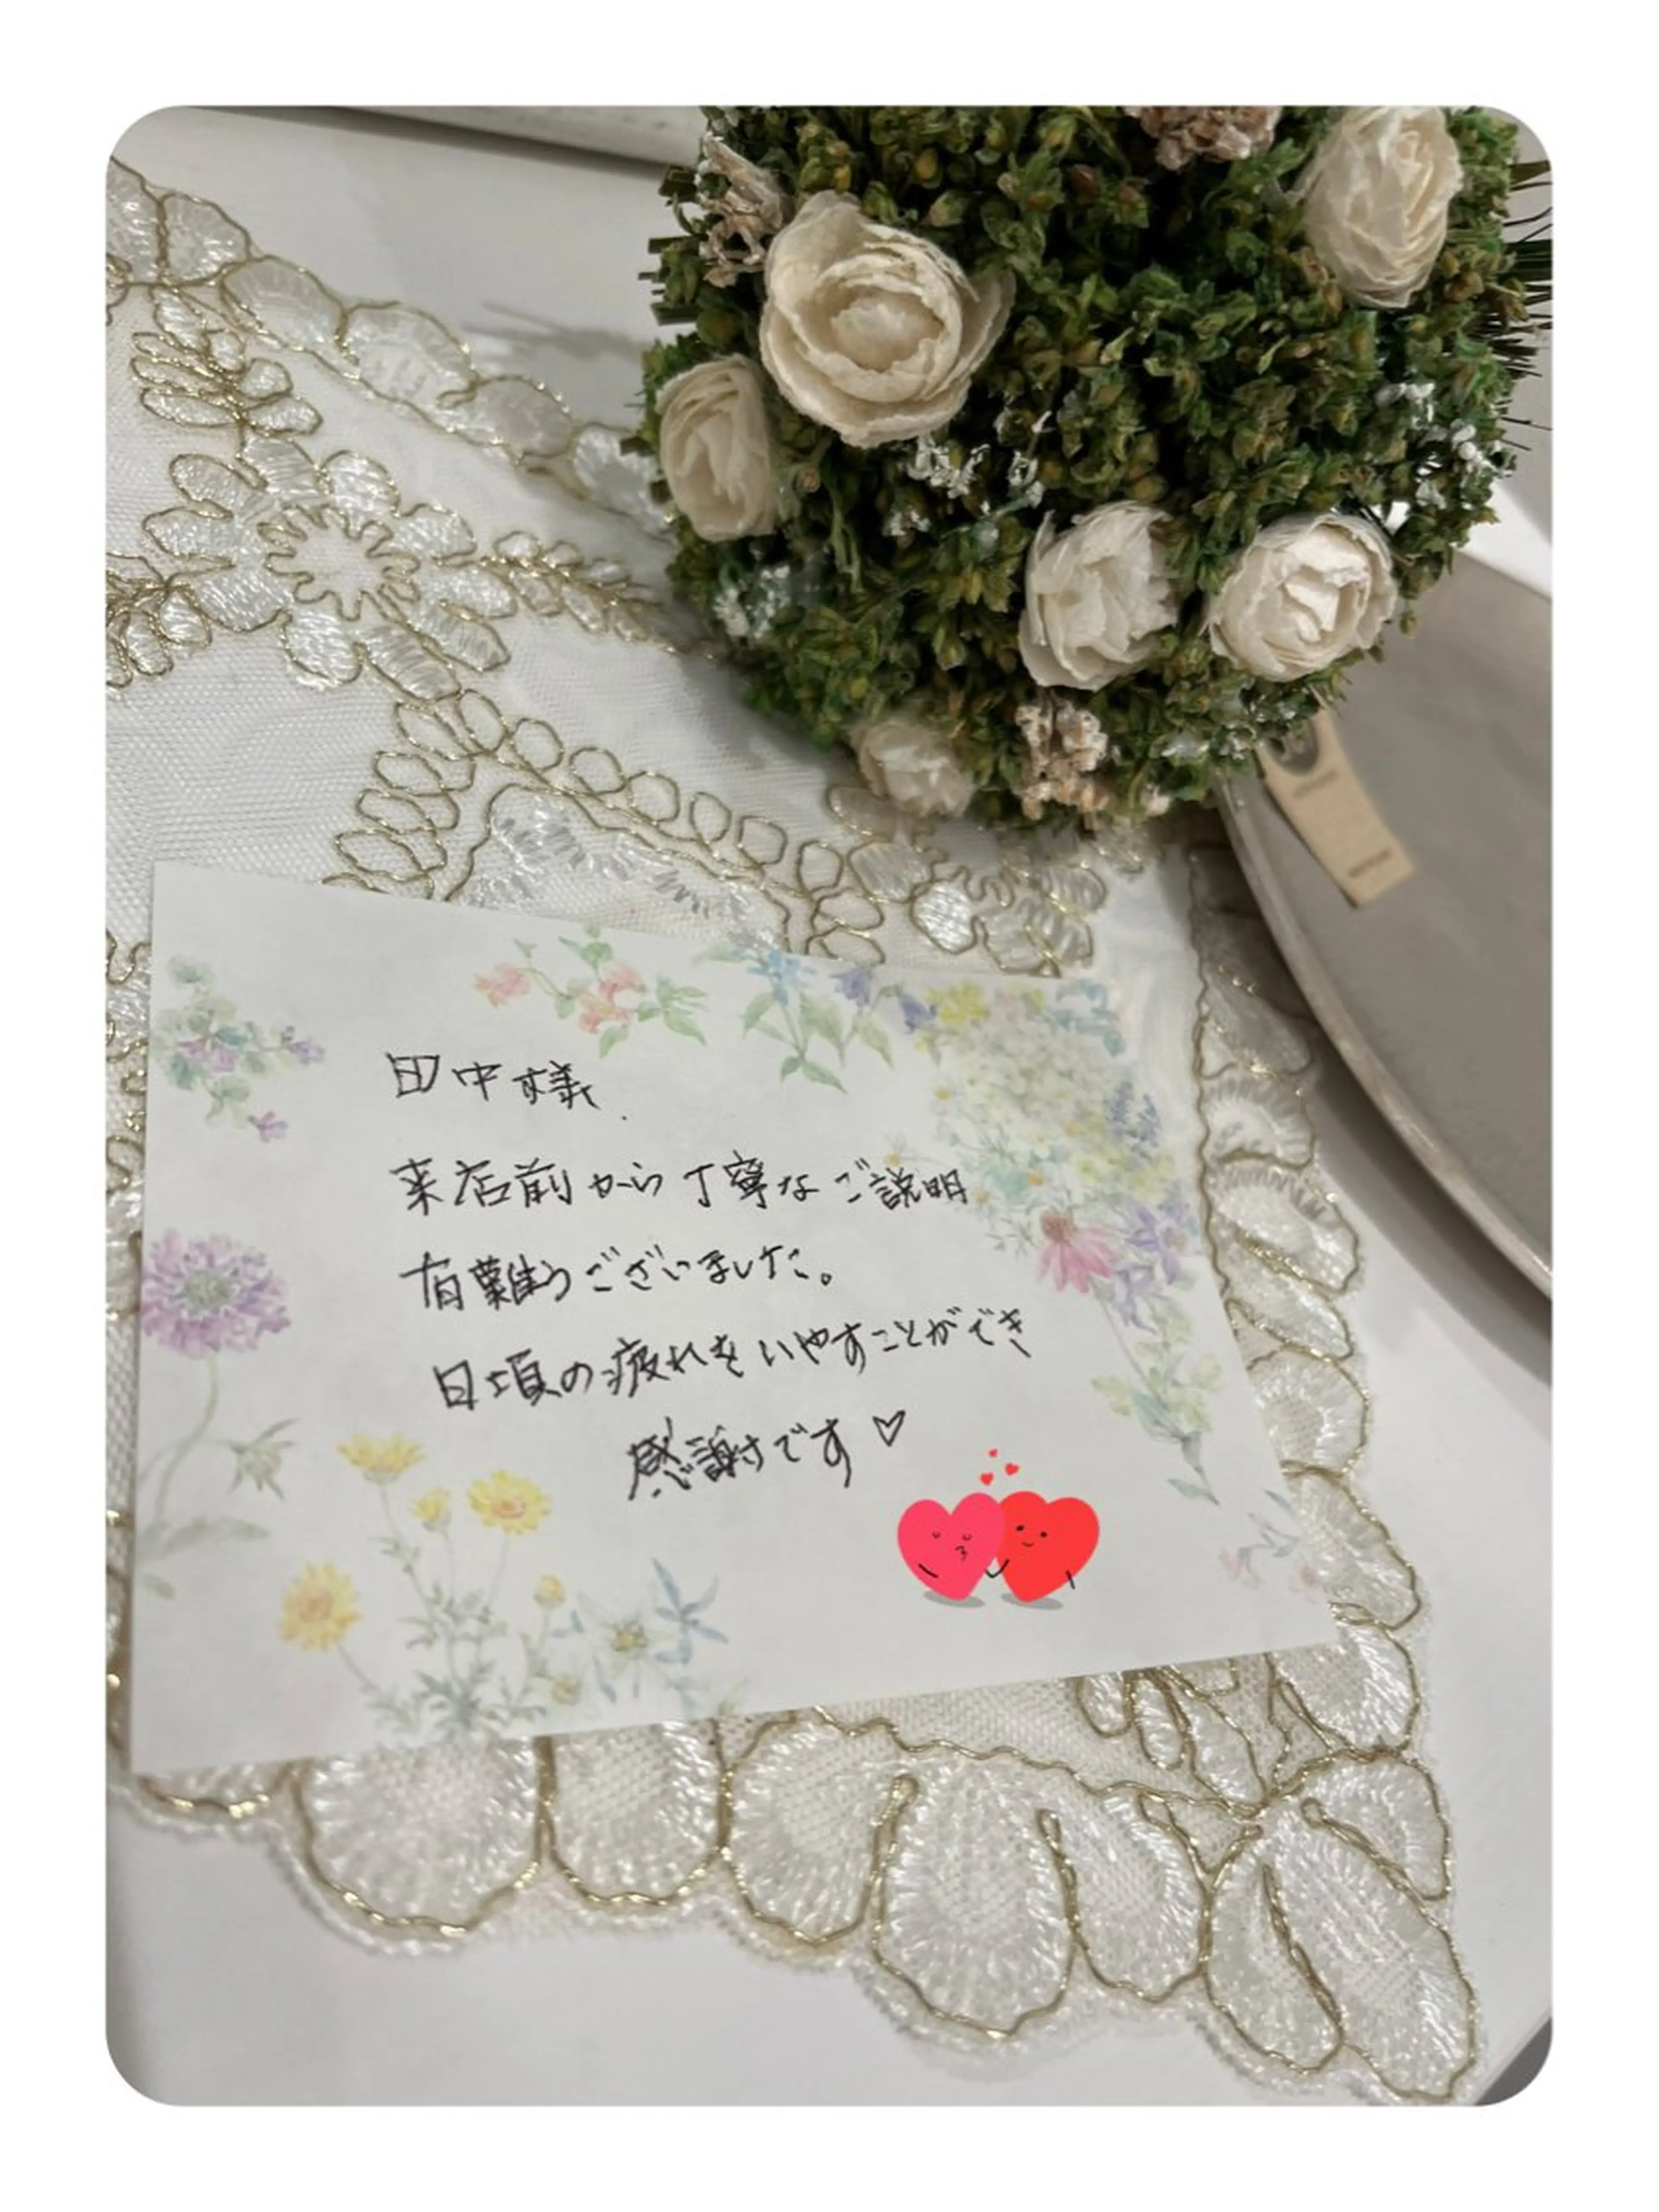 田中様
来店前から丁寧なご説明
有難うございました。
日頃の疲れをいやすことができ
感謝です♡